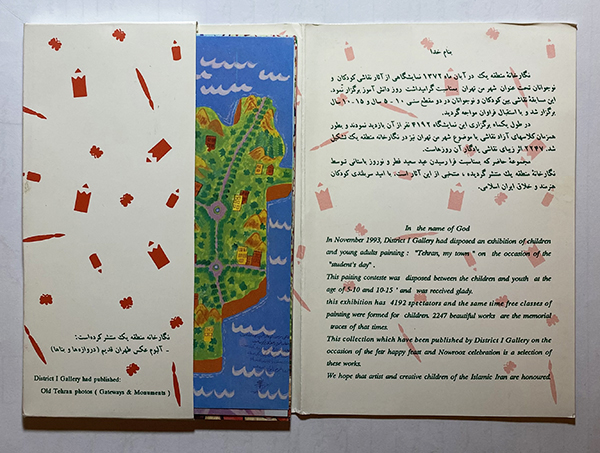 نگارخانهٔ منطقه یک منتشر کرده است:
- آلبوم عکس طهران قدیم (دروازه‌ها و بناها)
District I Gallery had published:
Old Tehran photos ( Gateways & Monuments )
بنام خدا
نگارخانهٔ منطقه یک در آبان ماه ۱۳۷۲ نمایشگاهی از آثار نقاشی کودکان و
نوجوانان تحت عنوان شهر من تهران بمناسبت گرامیداشت روز دانش آموز برگزار نمود.
این مسابقه نقاشی بین کودکان و نوجوانان در دو مقطع سنی ۱۰-۵ سال و ۱۵-۱۰ سال
برگزار شد و با استقبال فراوان مواجه گردید.
در طول یکماه برگزاری این نمایشگاه ۴۱۹۲ نفر از آن بازدید نمودند و بطور
همزمان کلاسهای آزاد نقاشی با موضوع شهر من تهران نیز در نگارخانه منطقه یک تشکیل
شد. ۲۲۴۷ اثر زیبای نقاشی یادگار آن روزهاست.
مجموعهٔ حاضر که بمناسبت فرا رسیدن عید سعید فطر و نوروز باستانی توسط
نگارخانه منطقه یك منتشر گردیده ، منتخبی از این آثار است: با امید سربلندی کودکان
هنرمند و خلاق ایران اسلامی.
In the name of God
In November 1993, District I Gallery had disposed an exhibition of children
and young adults painting : "Tehran, my town" on the occasion of the
"student's day" .
This paiting conteste was disposed between the children and youth at the
age of 5-10 and 10-15 ' and was received glady.
this exhibition has 4192 spectators and the same time free classes of
painting were formed for children. 2247 beautiful works are the memorial
traces of that times.
This collection which have been published by District I Gallery on the
occasion of the fetr happy feast and Nowrooz celebration is a selection of
these works.
We hope that artist and creative children of the Islamic Iran are honoured.